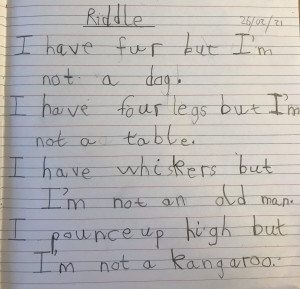 Riddle
26/02/21
I have fur but I'm
not a dog.
I have four legs but I'm
not a table.
I have whiskers but
I'm not an old man.
I pounce up high but
I'm not a kangaroo.